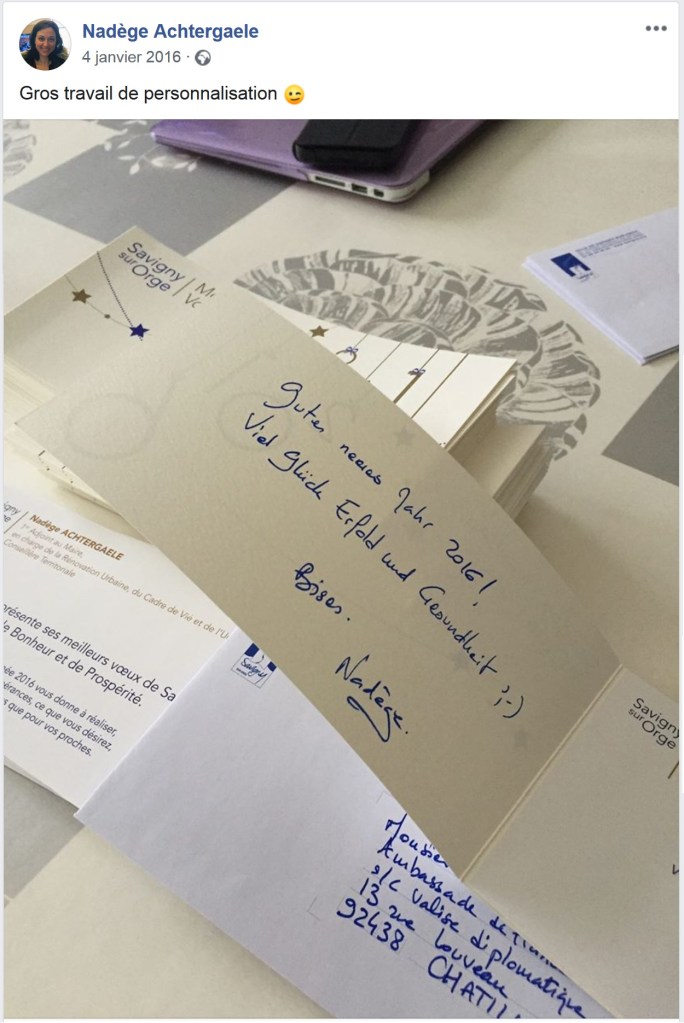 Nadège Achtergaele
4 janvier 2016
Gros travail de personnalisation 😉
Savigny
sur Orge
Gutes neues Jahr 2016!
Viel Glück Erfold und Gesundheit ;-)
Bises.
Nadège.
Nadège ACHTERGAELE
1er Adjoint au Maire,
en charge de la Rénovation Urbaine, du Cadre de Vie et de
Conseillère Territoriale
présente ses meilleurs vœux de
Bonheur et de Prospérité.
2016 vous donne à réaliser,
ce que vous désirez,
que pour vos proches.
Savigny
Savigny
sur Orge
Ambassade de
s/c valise diplomatique
13 rue Louveau
92438